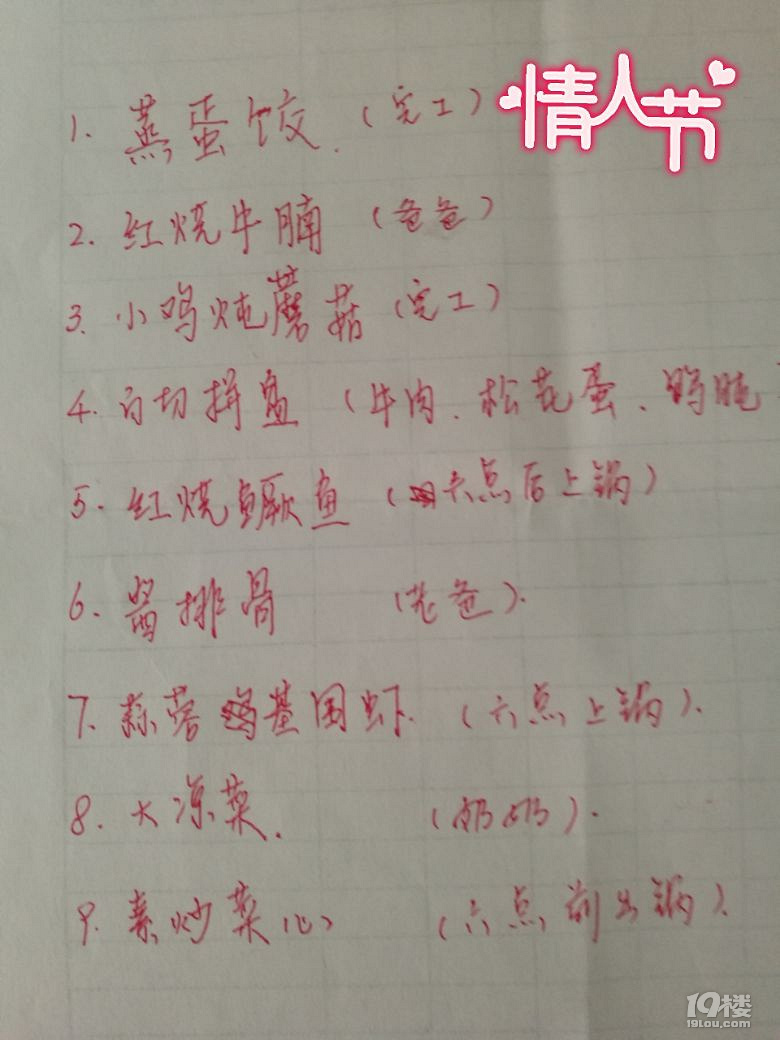 情人节
1. 蒸蛋饺.(完工)
2. 红烧牛腩(爸爸)
3. 小鸡炖蘑菇(完工)
4. 白切拼盘(牛肉.松花蛋、鸡肫
5. 红烧鳜鱼(六点后上锅)
6. 酱排骨(老爸).
7. 蒜蓉基围虾.(六点上锅).
8. 大凉菜.(奶奶).
9. 素炒菜心(六点前出锅).
19楼
19lou.com